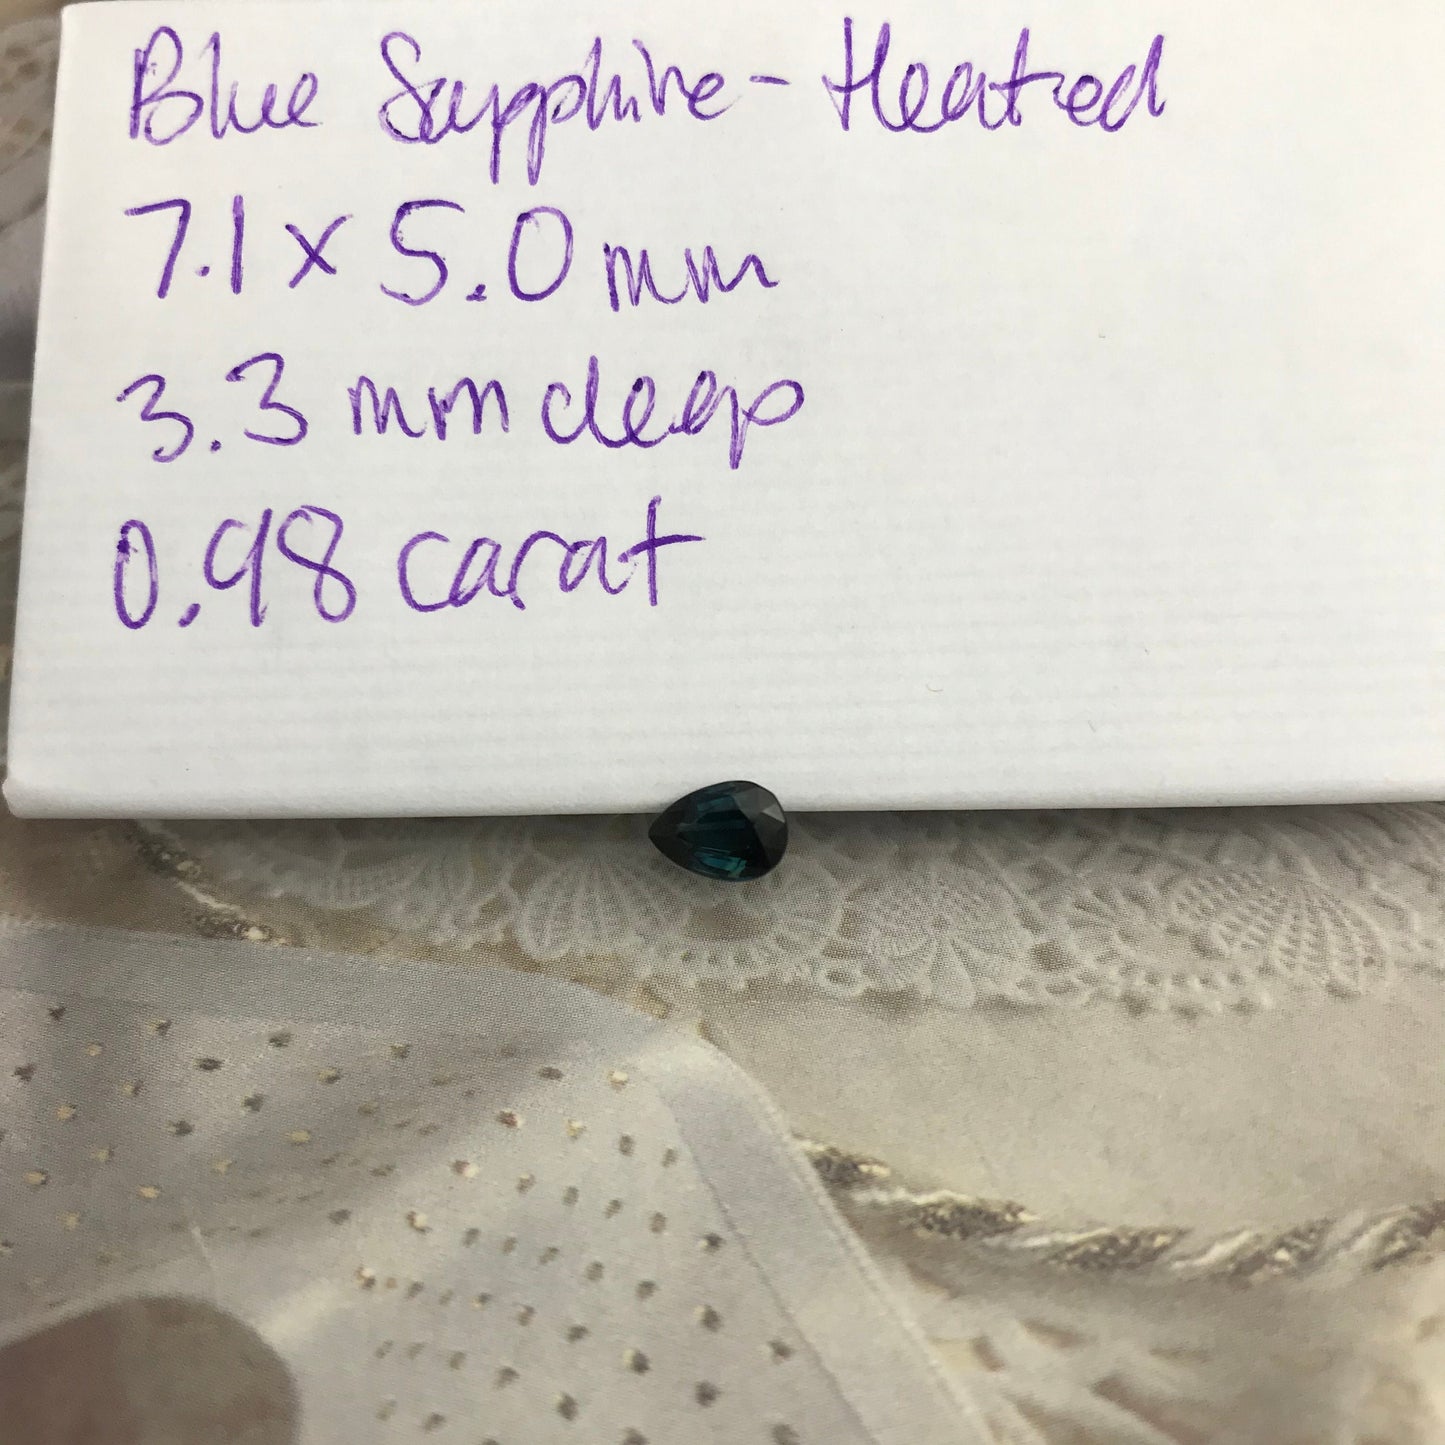 Blue Sapphire - Heated
7.1 x 5.0 mm
3.3 mm deep
0.98 carat